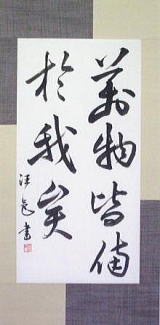 萬物皆備
於我矣